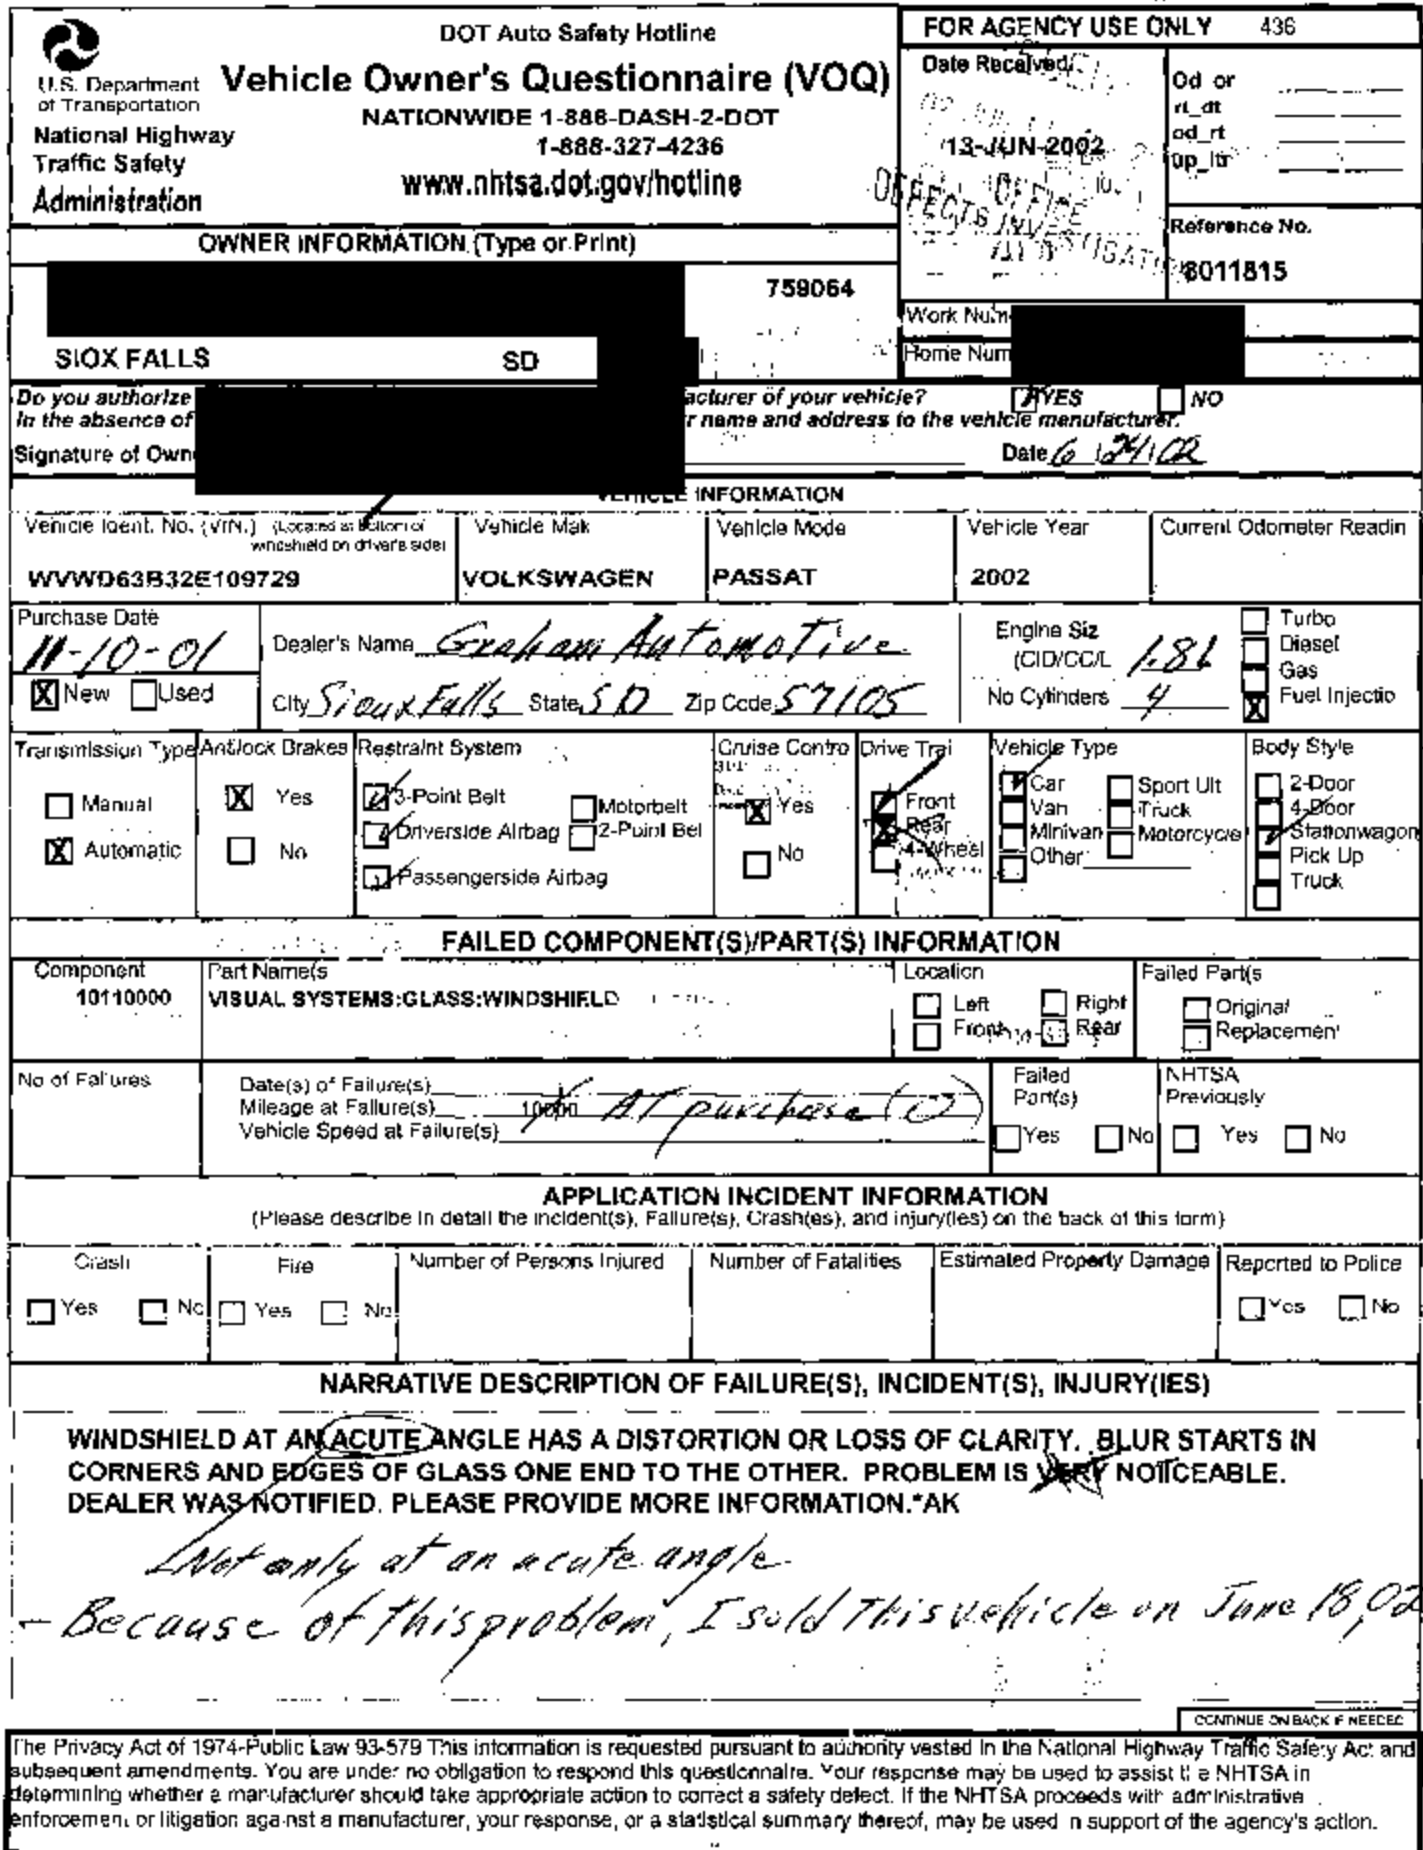 DOT Auto Safety Hotline
FOR AGENCY USE ONLY 436
U.S. Department
of Transportation
National Highway
Traffic Safety
Administration
Vehicle Owner's Questionnaire (VOQ)
NATIONWIDE 1-888-DASH-2-DOT
1-888-327-4236
www.nhtsa.dot.gov/hotline
Date Received
13-JUN-2002
OFFICE
DEFECTS INVESTIGATION
Od or
rt_dt
od_rt
up_ltr
Reference No.
8011815
OWNER INFORMATION (Type or Print)
759064
SIOX FALLS SD
Work Num
Home Num
Do you authorize acturer of your vehicle? YES NO
In the absence of r name and address to the vehicle manufacturer.
Signature of Own Date 6/24/02
VEHICLE INFORMATION
Vehicle Ident. No. (VIN.) (Located at bottom of
windshield on driver's side)
WVWD63B32E109729
Vehicle Mak
VOLKSWAGEN
Vehicle Mode
PASSAT
Vehicle Year
2002
Current Odometer Readin
Purchase Date
11-10-01
X New Used
Dealer's Name Graham Automotive
City Sioux Falls State SD Zip Code 57105
Engine Siz
(CID/CC/L 1.8L
No Cylinders 4
Turbo
Diesel
Gas
X Fuel Injectio
Transmission Type
Manual
X Automatic
Antilock Brakes
X Yes
No
Restraint System
3-Point Belt
Driverside Airbag
Passengerside Airbag
Motorbelt
2-Point Bel
Cruise Contro
X Yes
No
Drive Trai
Front
Rear
4-Wheel
Vehicle Type
Car
Van
Minivan
Other
Sport Ult
Truck
Motorcycle
Body Style
2-Door
4-Door
Stationwagon
Pick Up
Truck
FAILED COMPONENT(S)/PART(S) INFORMATION
Component
10110000
Part Name(s
VISUAL SYSTEMS:GLASS:WINDSHIELD
Location
Left Right
Front Rear
Failed Part(s
Original
Replacement
No of Failures
Date(s) of Failure(s)
Mileage at Failure(s) 10000 AT purchase (0)
Vehicle Speed at Failure(s)
Failed
Part(s)
Yes No
NHTSA
Previously
Yes No
APPLICATION INCIDENT INFORMATION
(Please describe in detail the incident(s), Failure(s), Crash(es), and injury(ies) on the back of this form)
Crash
Yes No
Fire
Yes No
Number of Persons Injured
Number of Fatalities
Estimated Property Damage
Reported to Police
Yes No
NARRATIVE DESCRIPTION OF FAILURE(S), INCIDENT(S), INJURY(IES)
WINDSHIELD AT AN ACUTE ANGLE HAS A DISTORTION OR LOSS OF CLARITY. BLUR STARTS IN
CORNERS AND EDGES OF GLASS ONE END TO THE OTHER. PROBLEM IS VERY NOTICEABLE.
DEALER WAS NOTIFIED. PLEASE PROVIDE MORE INFORMATION.*AK
Not only at an acute angle
- Because of this problem, I sold this vehicle on June 18, 02
CONTINUE ON BACK IF NEEDED
The Privacy Act of 1974-Public Law 93-579 This information is requested pursuant to authority vested in the National Highway Traffic Safety Act and
subsequent amendments. You are under no obligation to respond this questionnaire. Your response may be used to assist the NHTSA in
determining whether a manufacturer should take appropriate action to correct a safety defect. If the NHTSA proceeds with administrative
enforcement or litigation against a manufacturer, your response, or a statistical summary thereof, may be used in support of the agency's action.